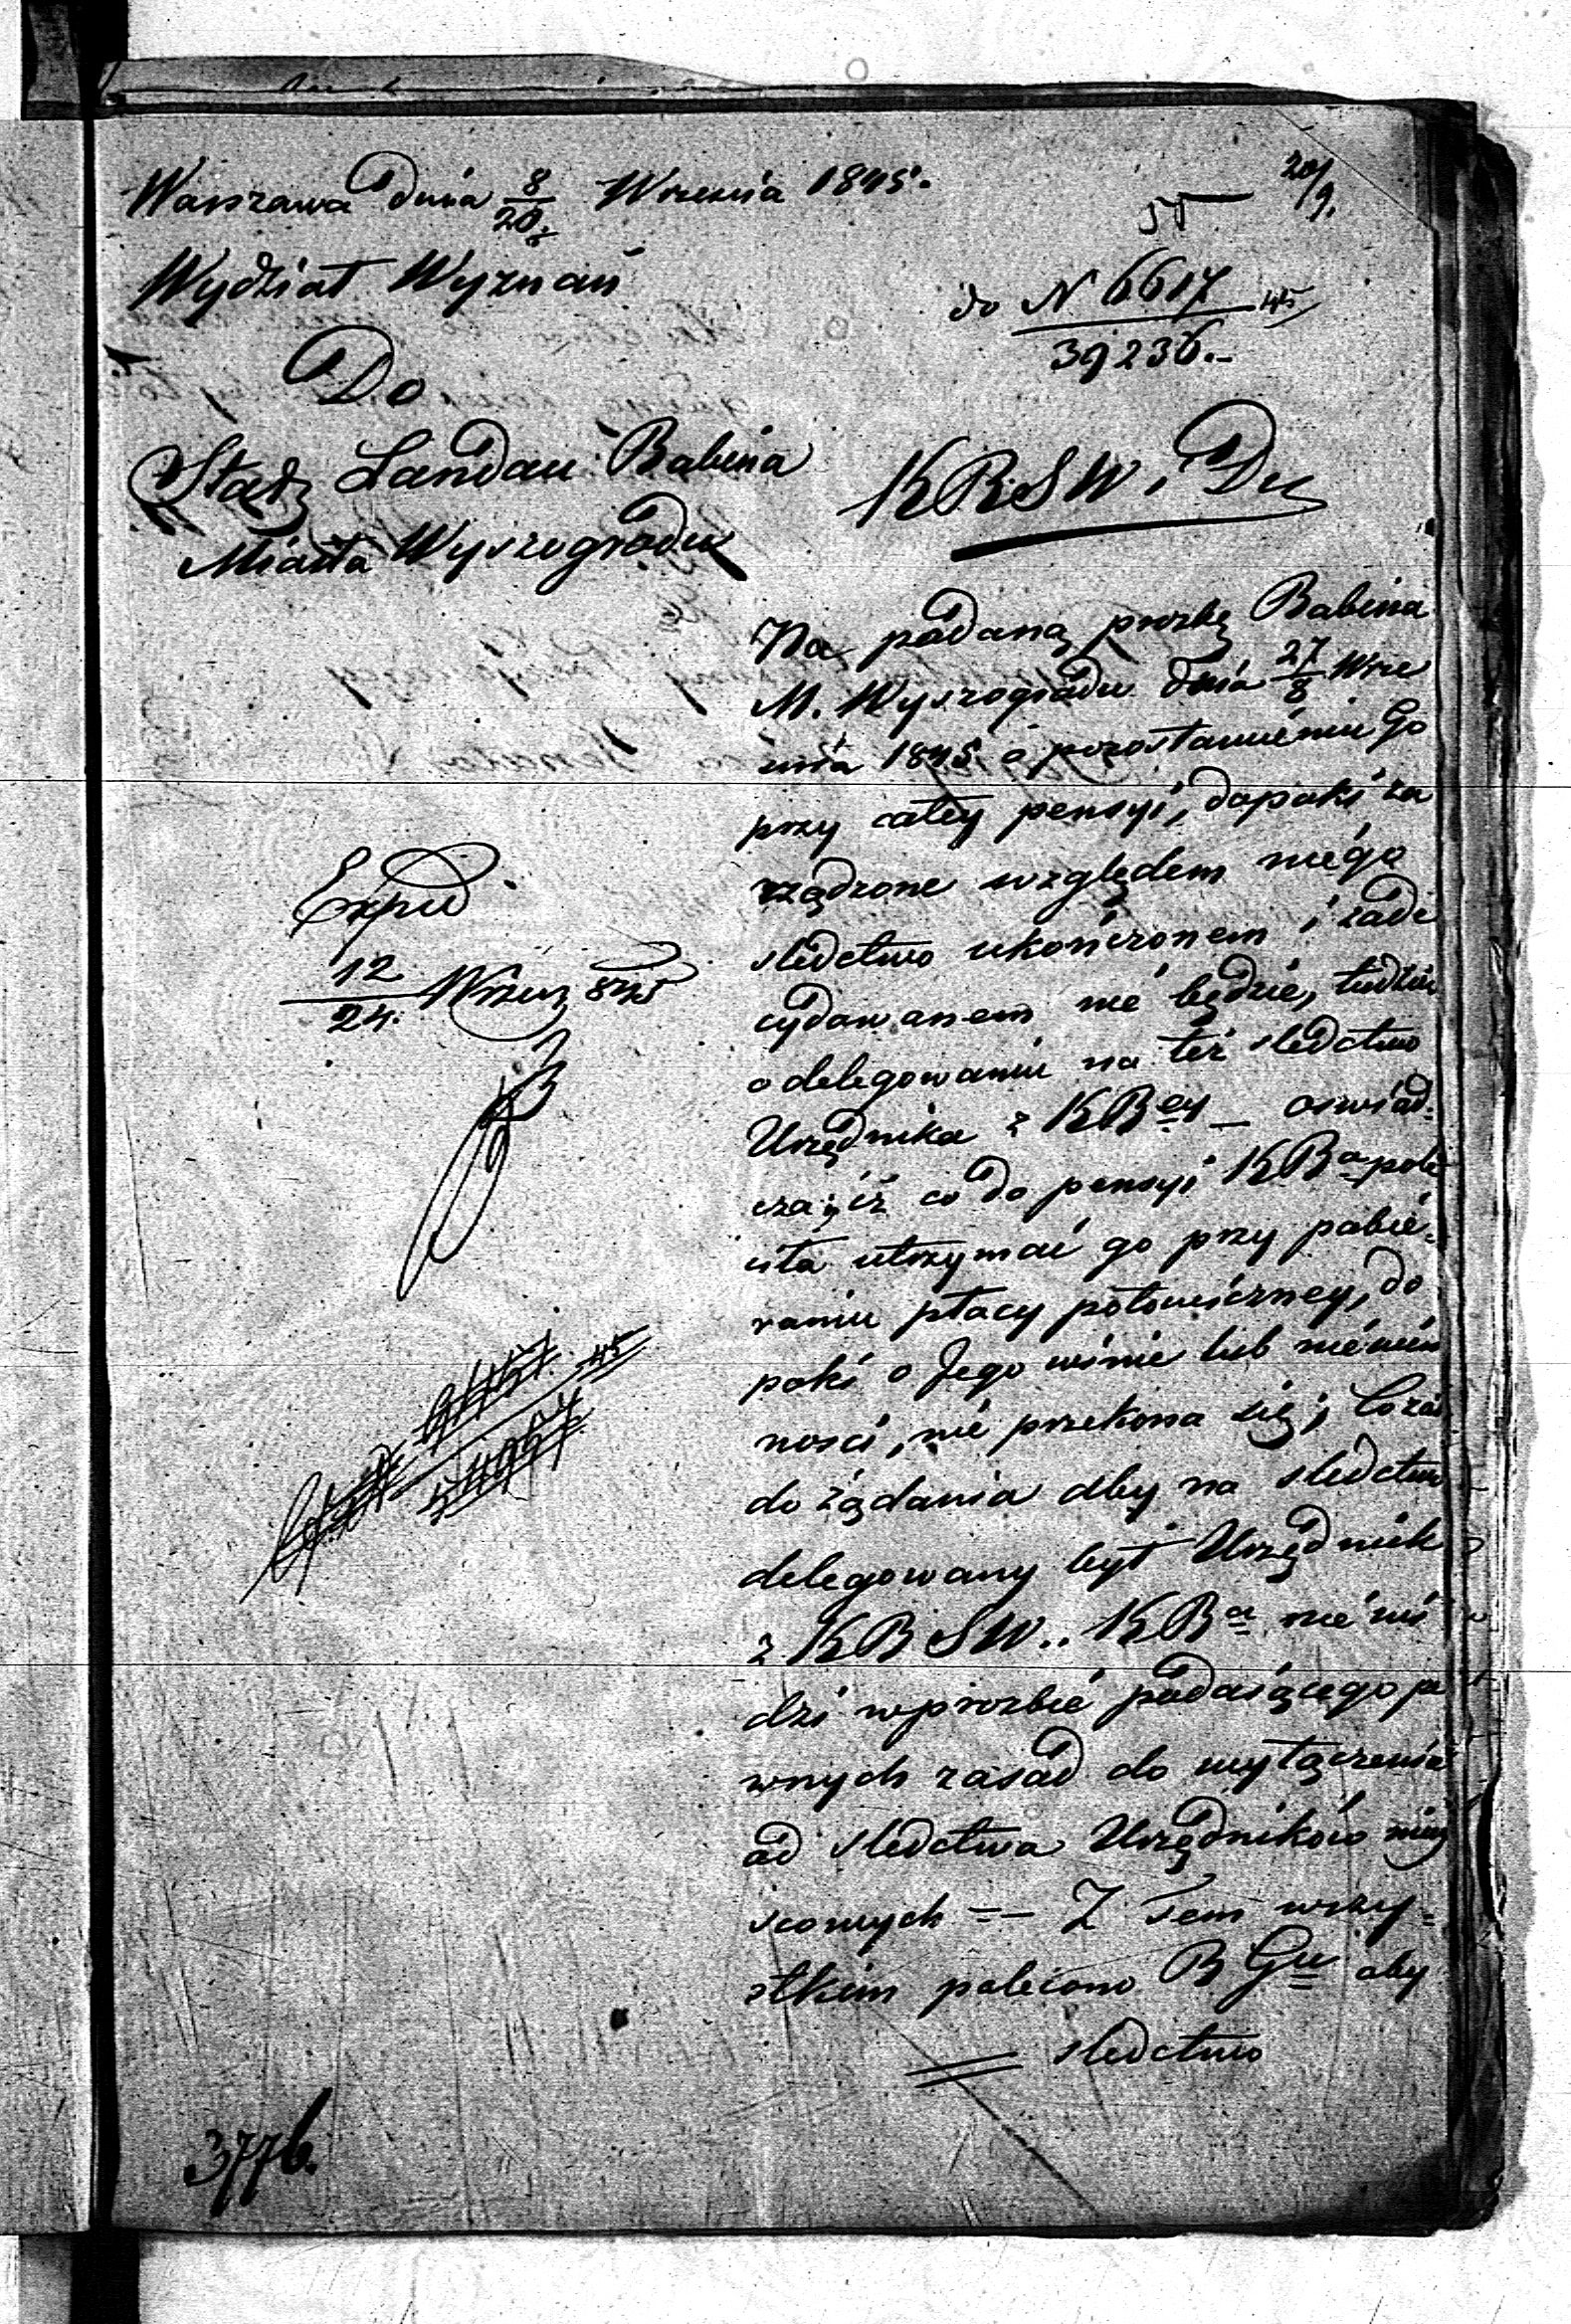 20/9.
Warszawa dnia 8/20 Września 1845.
55
Wydział Wyznań
do N 6617/39236.- 45
Do
Landau Rabina
Miasta Wyszogrodu
KRSW i Du
Na podaną prozbę Rabina
M. Wyszogrodu dnia 27/8 Wrze
śnia 1845 o pozostawieniu Go
przy całey pensyi, dopoki za
rządzone względem niego
sledctwo ukończonem i zade
cydowanem nie będzie, tudzież
o delegowaniu na też sledctwo
Urzędnika z KRey _ oswiad=
cza, iż co do pensyi KRa pole
ciła utrzymać go przy pobie=
raniu płacy połowiczney, do
poki o Jego winie lub niewin
nosci, nie przekona się; Co zaś
do żądania aby na sledctwo
delegowany był Urzędnik
z KRSW.. KRa nie wi
dzi w prozbie podaiącego pe
wnych zasad do wyłączenia
od sledctwa Urzędników miey
scowych =- Z tem wszy=
stkim polecono RGu aby
sledctwo
Exped
12/24. Wrześ 845
3776.